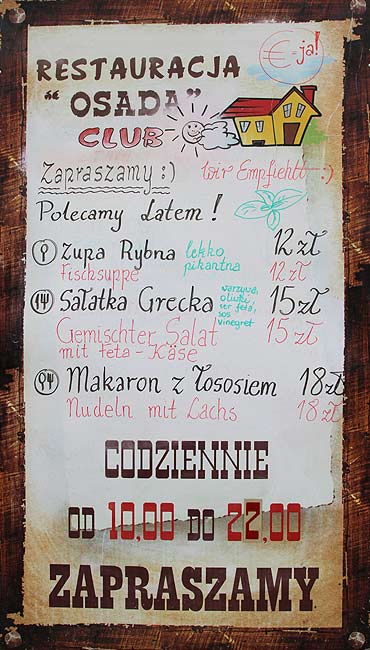 € = ja!
RESTAURACJA
“OSADA”
CLUB
Zapraszamy :) Wir Empfiehlt :)
Polecamy Latem!
Zupa Rybna lekko pikantna 12 zł
Fischsuppe 12 zł
Sałatka Grecka warzywa, oliwki, ser feta, sos vinegret 15 zł
Gemischter Salat 15 zł
mit feta - Käse
Makaron z łososiem 18 zł
Nudeln mit Lachs 18 zł
CODZIENNIE
OD 10,00 DO 22,00
ZAPRASZAMY